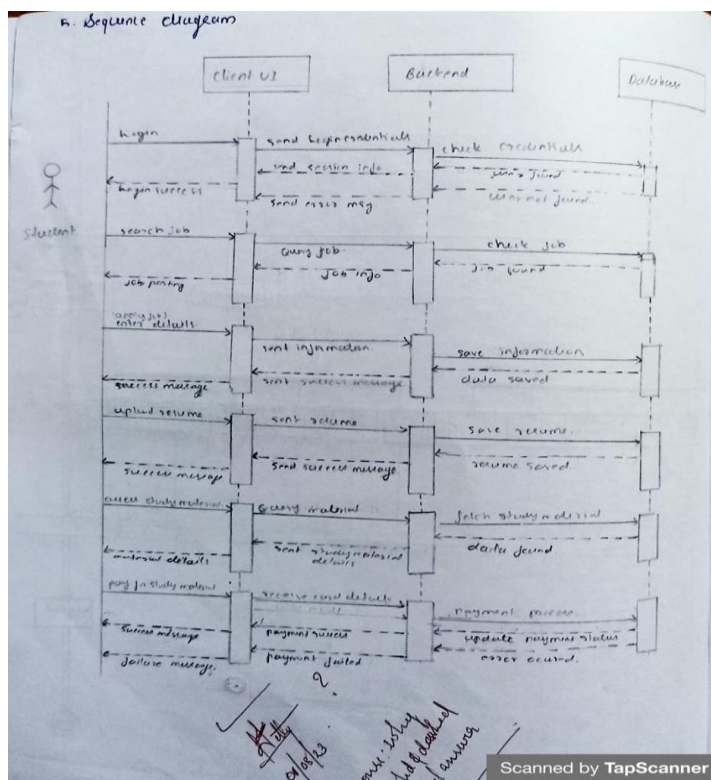 5. Sequence diagram
Client UI
Backend
Database
Student
login
send login credentials
check credentials
send session info
user found
login success
send error msg
user not found.
search job
Query job.
check job
job posting
job info
job found
apply job
enter details
sent information.
save information
success message
sent success message
data saved
upload resume
sent resume
save resume.
success message
send success message.
resume saved.
access study material
Query material
fetch study material
material details
sent study material
details
data found
pay for study material
receive card details
payment process.
success message
payment success
update payment status
failure message.
payment failed
error occured.
?
Scanned by TapScanner